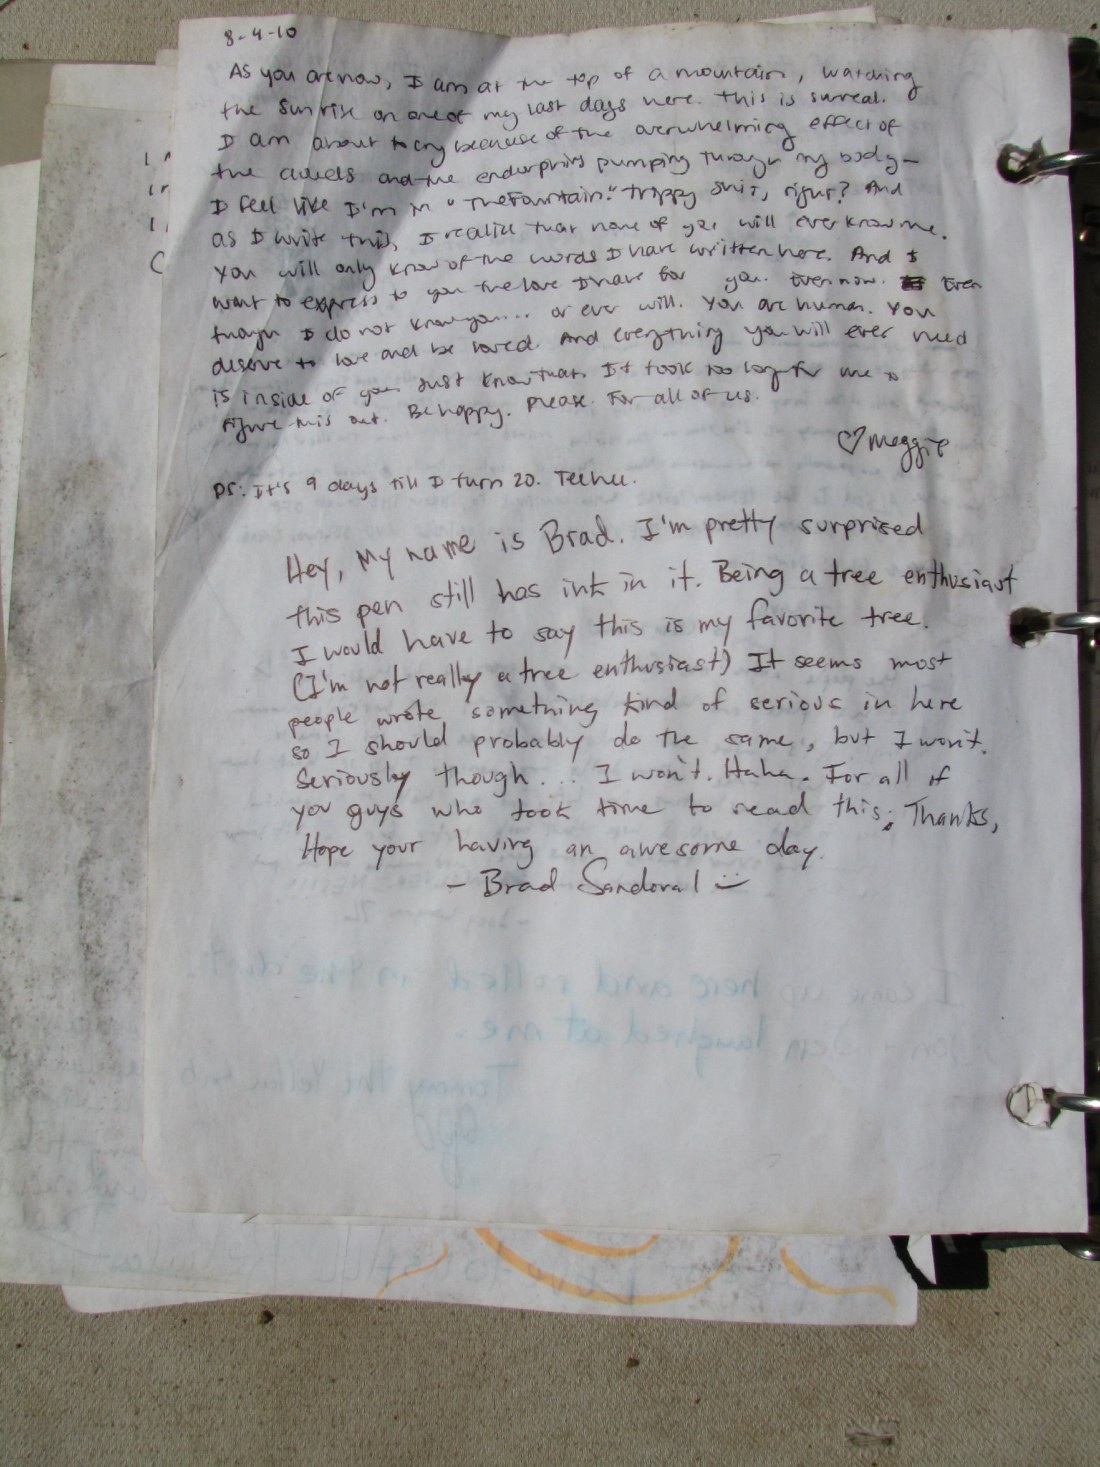 8-4-10
As you are now, I am at the top of a mountain, watching
the sunrise on one of my last days here. This is surreal.
I am about to cry because of the overwhelming effect of
the clouds and the endorphins pumping through my body-
I feel like I'm in "The Fountain." Trippy shit, right? And
as I write this, I realize that none of you will ever know me.
You will only know of the words I have written here. And I
want to express to you the love I have for you. Even now. Even
though I do not know you... or ever will. You are human. You
deserve to love and be loved. And everything you will ever need
is inside of you. Just know that. It took too long for me to
figure this out. Be happy. Please. For all of us.
♡ Maggie
PS: It's 9 days till I turn 20. Teehee.
Hey, My name is Brad. I'm pretty surprised
this pen still has ink in it. Being a tree enthusiast
I would have to say this is my favorite tree.
(I'm not really a tree enthusiast) It seems most
people wrote something kind of serious in here
so I should probably do the same, but I won't.
Seriously though... I won't. Haha. For all if
you guys who took time to read this; Thanks,
Hope your having an awesome day.
- Brad Sandoval
I came up here and rolled in the dirt.
laughed at me.
Tommy the